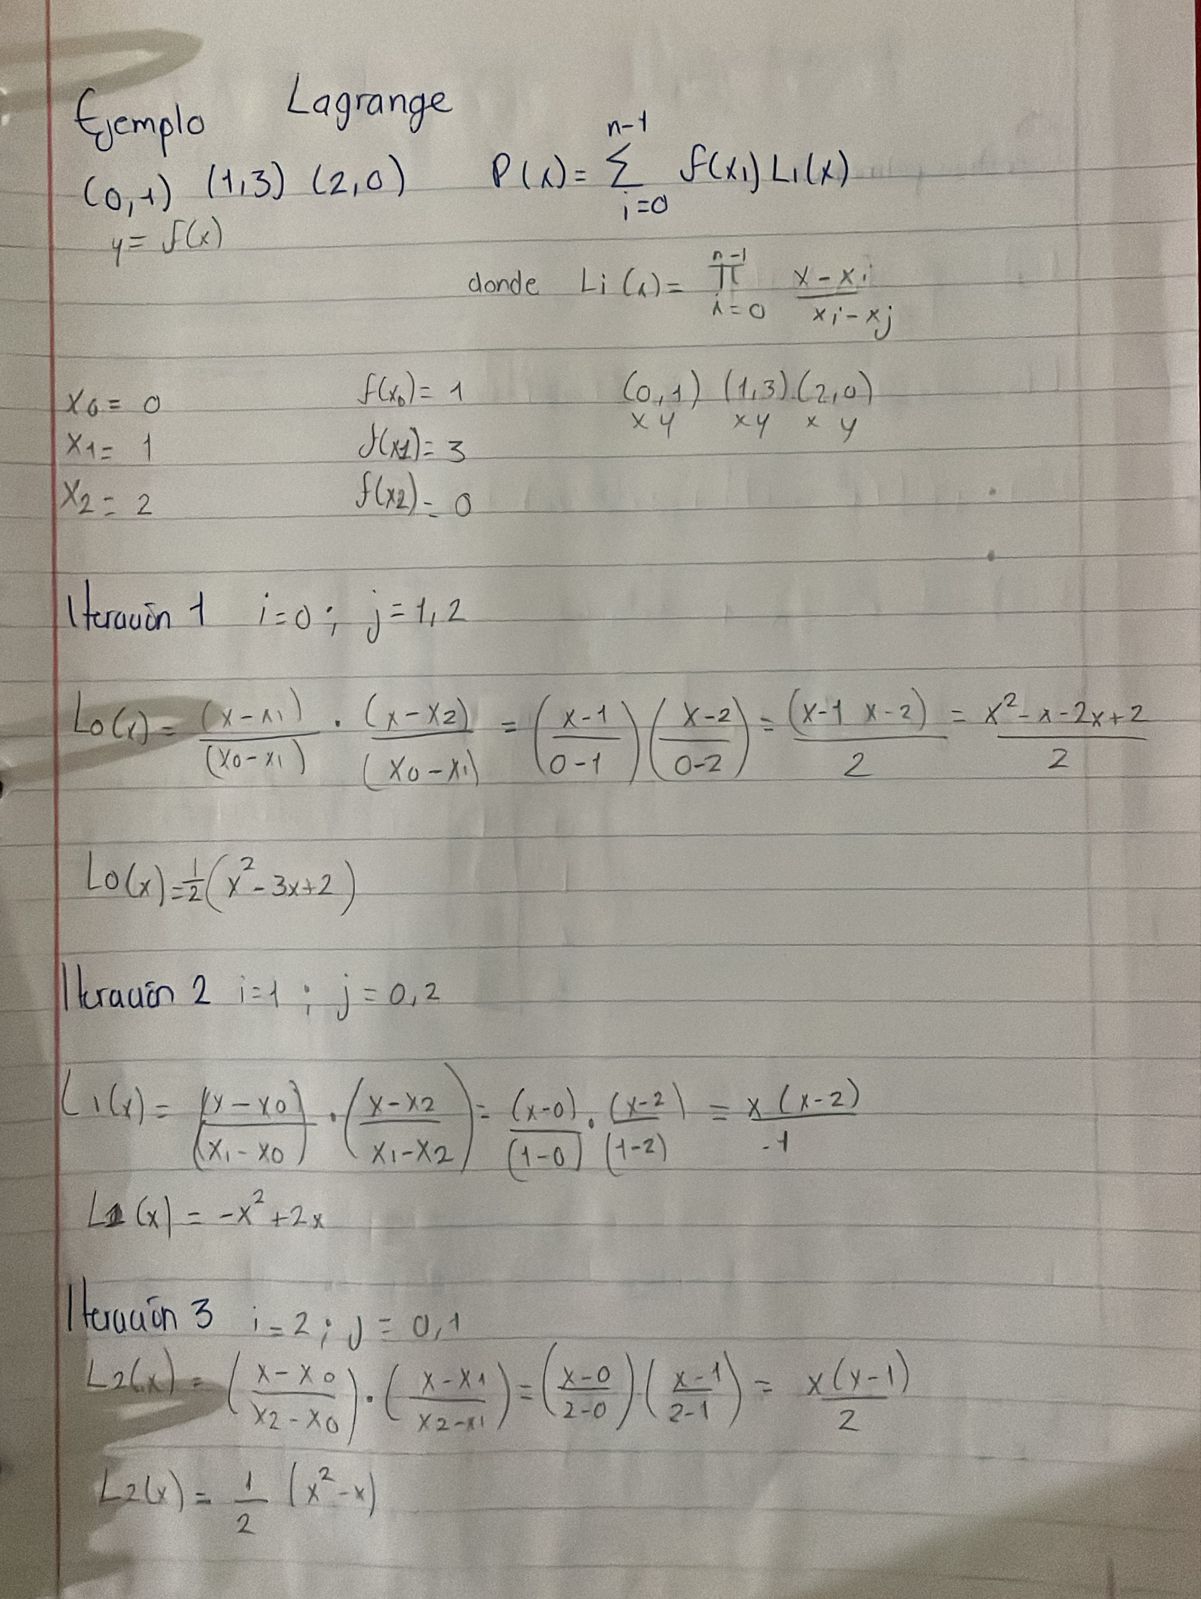 Ejemplo Lagrange
(0,1) (1,3) (2,0) P(x)= n-1 Σ i=0 f(xi) Li(x)
y= f(x)
donde Li(x)= n-1 π i=0 x-xi / xi-xj
x0= 0 f(x0)= 1 (0,1) (1,3) (2,0)
x y x y x y
x1= 1 f(x1)= 3
x2= 2 f(x2)= 0
Iteración 1 i=0; j=1,2
L0(x)= (x-x1)/(x0-x1) · (x-x2)/(x0-x1) = (x-1/0-1)(x-2/0-2) = (x-1 x-2)/2 = x²-x-2x+2/2
L0(x)=1/2(x²-3x+2)
Iteración 2 i=1; j=0,2
L1(x)= (x-x0)/(x1-x0) · (x-x2/x1-x2) = (x-0)/(1-0) · (x-2)/(1-2) = x(x-2)/-1
L1(x) = -x²+2x
Iteración 3 i=2; j=0,1
L2(x)= (x-x0/x2-x0) · (x-x1/x2-x1) = (x-0/2-0)(x-1/2-1) = x(x-1)/2
L2(x)= 1/2 (x²-x)